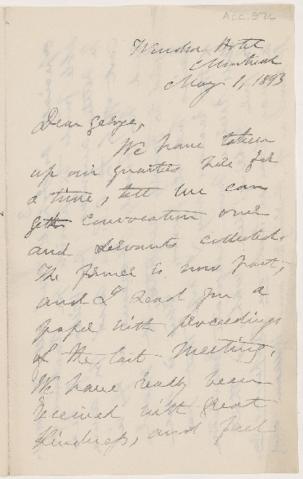 ACC. 526
Windsor Hotel
Montreal
May 1, 1893
Dear George,
We have taken
up our quarters here for
a time, till we can
get convocation over
and servants collected.
The former is now past,
and I send you a
paper with proceedings
of the last meeting.
We have really been
received with great
kindness, and feel